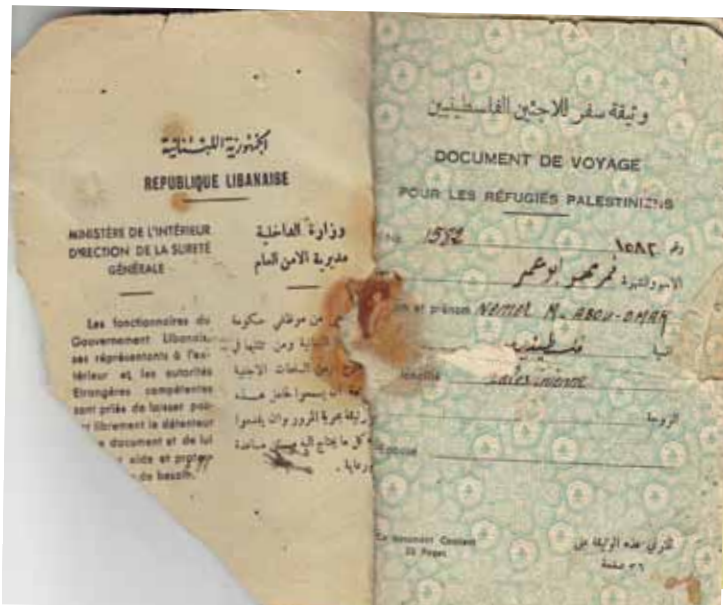 الجمهورية اللبنانية
REPUBLIQUE LIBANAISE
MINISTÈRE DE L'INTÉRIEUR
DIRECTION DE LA SURETÉ
GÉNÉRALE
وزارة الداخلية
مديرية الامن العام
Les fonctionnaires du
Gouvernement Libanais,
ses représentants à l'ex-
térieur et les autorités
Etrangères compétentes
sont priés de laisser pas-
librement le détenteur
document et de lui
aide et
de besoin.
من موظفي حكومة
ومن تمثلها في
السلطات الاجنبية
ان يسمحوا لحامل هذه
بحرية المرور وان يقدموا
كل ما يحتاج اليه من مساعدة
وثيقة سفر للاجئين الفلسطينيين
DOCUMENT DE VOYAGE
POUR LES RÉFUGIÉS PALESTINIENS
No 1582 رقم ١٥٨٢
الاسم والشهرة نمر محمد ابو عمر
et prénom Nemer M. ABOU-OMAR
فلسطينيه
الزوجة
Epouse
Ce document Contient
Pages
تحتوي هذه الوثيقة على
٣٦ صفحة